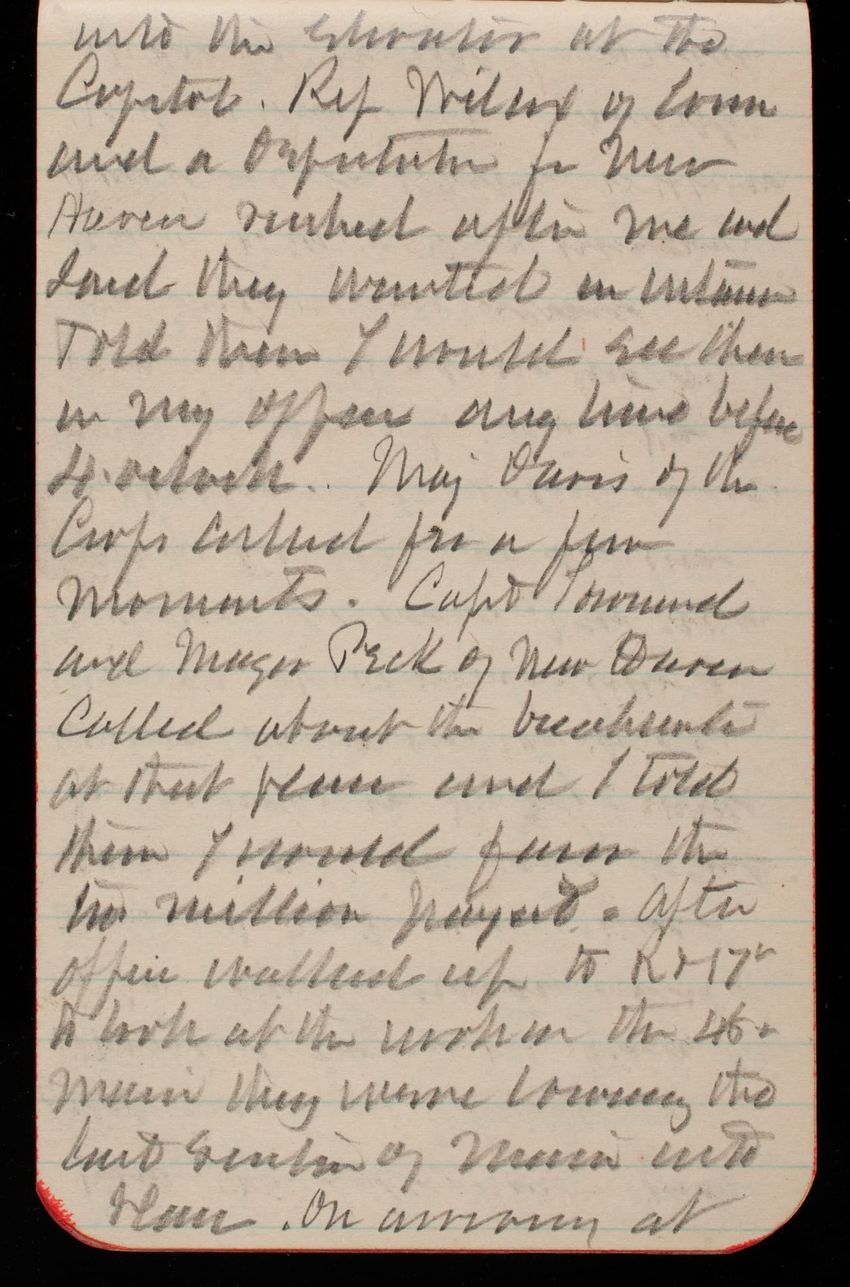 into the Elevator at the
Capitol. Rep Wilcox of Conn
and a Deputation fr New
Haven rushed after me and
said they wanted an interview
Told them I would see them
in my office any time before
4. oclock. Maj Davis of the
Corps called for a few
moments. Capt Townsend
and Mayor Peck of New Haven
Called about the breakwater
at that place and I told
them I would favor the
two million project. After
office walked up to R & 17th
to look at the work on the 48"
main they were lowering the
last section of main into
place. On arriving at